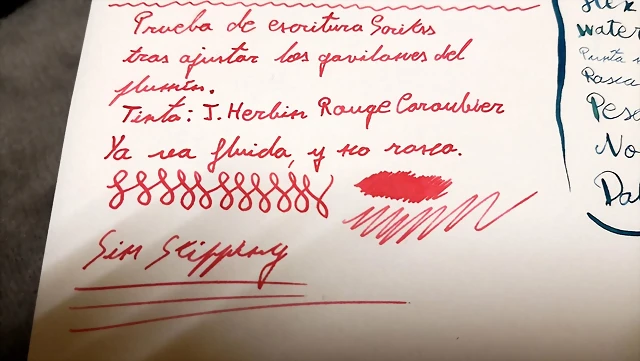 Prueba de escritura Scrikss
tras ajustar los gavilanes del
plumín.
Tinta: J. Herbin Rouge Caroubier
Ya va fluida, y no rasca.
Sin Skipping
water
Punta
Rasca
No